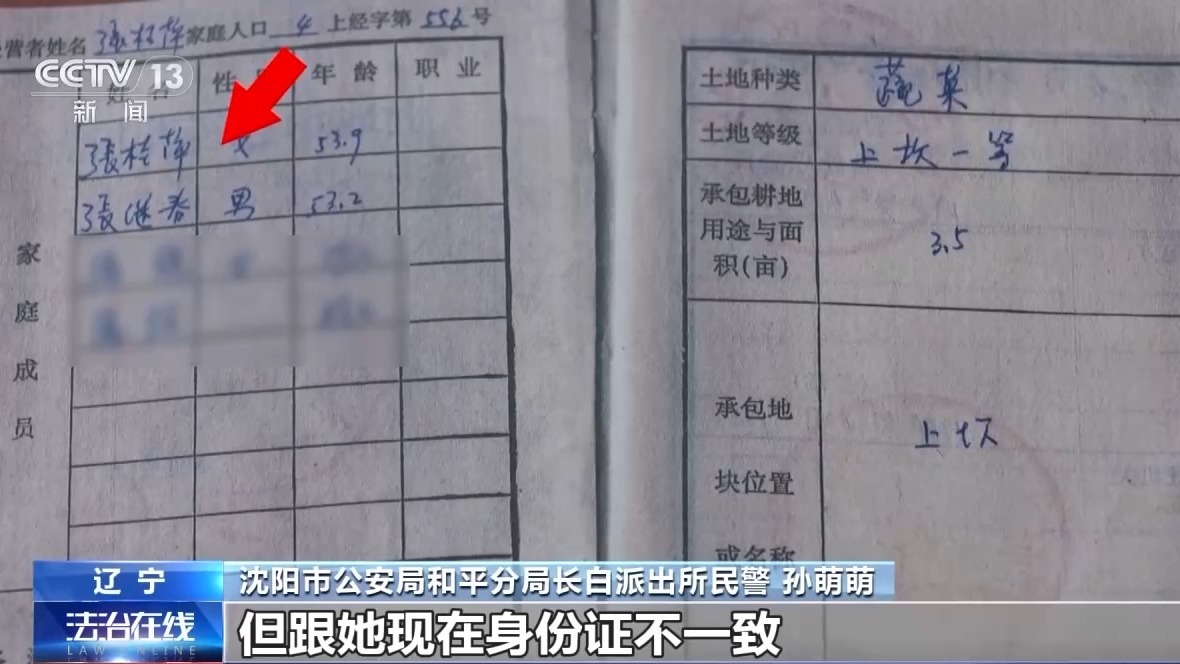 营者姓名 張桂萍 家庭人口 4 上经字第 556 号
CCTV 13
新闻
年龄 职业
張桂萍 女 53.9
張继春 男 53.2
家庭成员
土地种类 蔬菜
土地等级 上坎一等
承包耕地
用途与面 3.5
积(亩)
承包地 上坎
块位置
或名称
辽宁 沈阳市公安局和平分局长白派出所民警 孙萌萌
法治在线 但跟她现在身份证不一致
LAW ONLINE